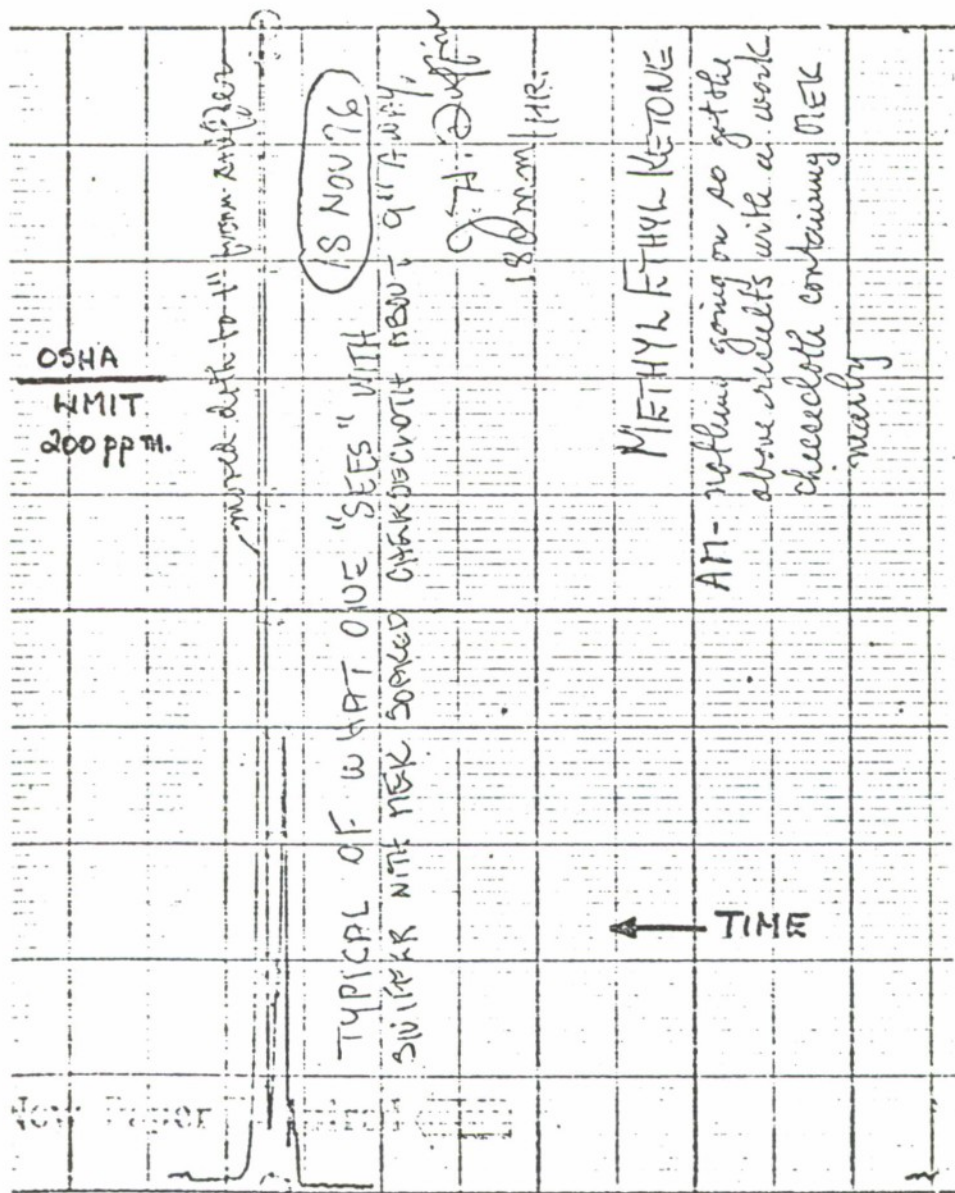 OSHA
LIMIT
200 ppm.
moved cloth to 1" from sniffer
18 NOV 76
TYPICAL OF WHAT ONE "SEES" WITH
SNIFFER WITH MEK SOAKED CHEESECLOTH ABOUT 9" AWAY,
J. H. Duffin
18 mm/HR.
METHYL ETHYL KETONE
AM- nothing going on so got the
above results with a work
cheesecloth containing MEK
nearby
TIME